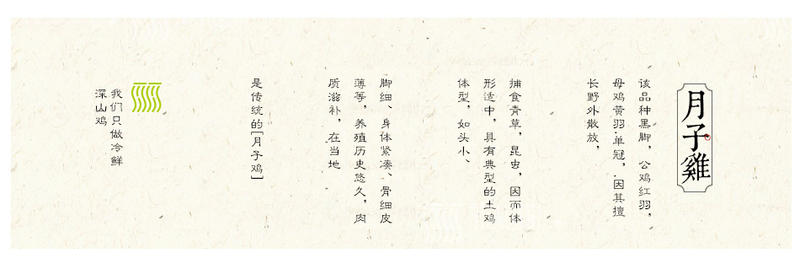 月子雞
该品种黑脚，公鸡红羽，
母鸡黄羽，单冠，因其擅
长野外散放，
捕食青草，昆虫，因而体
形适中，具有典型的土鸡
体型，如头小、
脚细、身体紧凑、骨细皮
薄等，养殖历史悠久，肉
质滋补，在当地
是传统的［月子鸡］
我们只做冷鲜
深山鸡